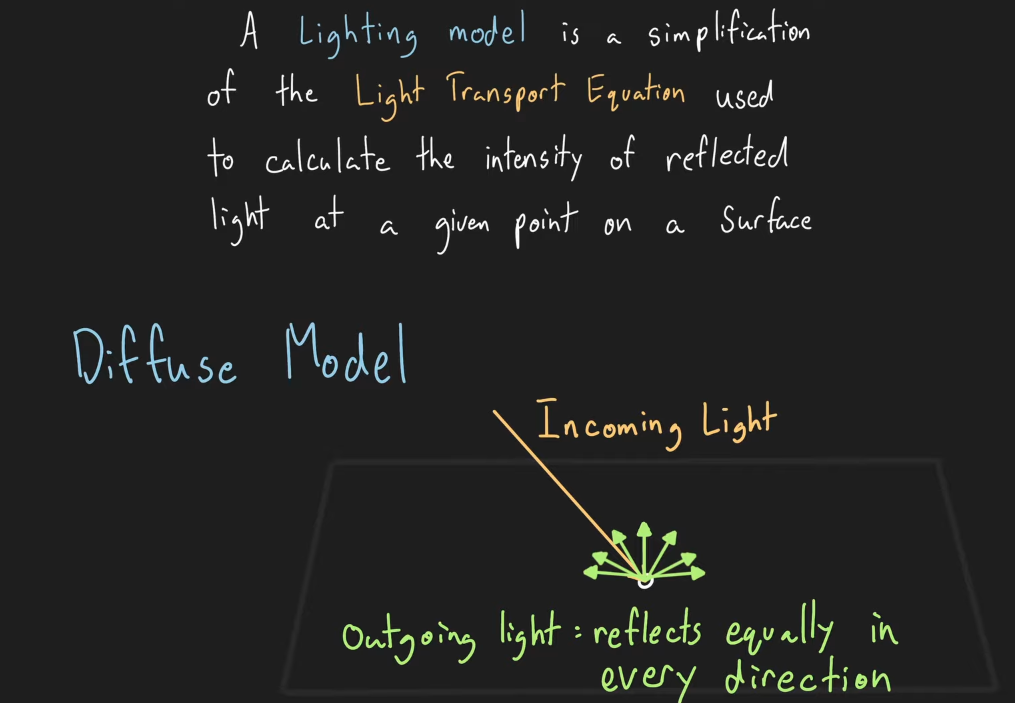 A Lighting model is a simplification
of the Light Transport Equation used
to calculate the intensity of reflected
light at a given point on a Surface
Diffuse Model
Incoming Light
Outgoing light: reflects equally in
every direction